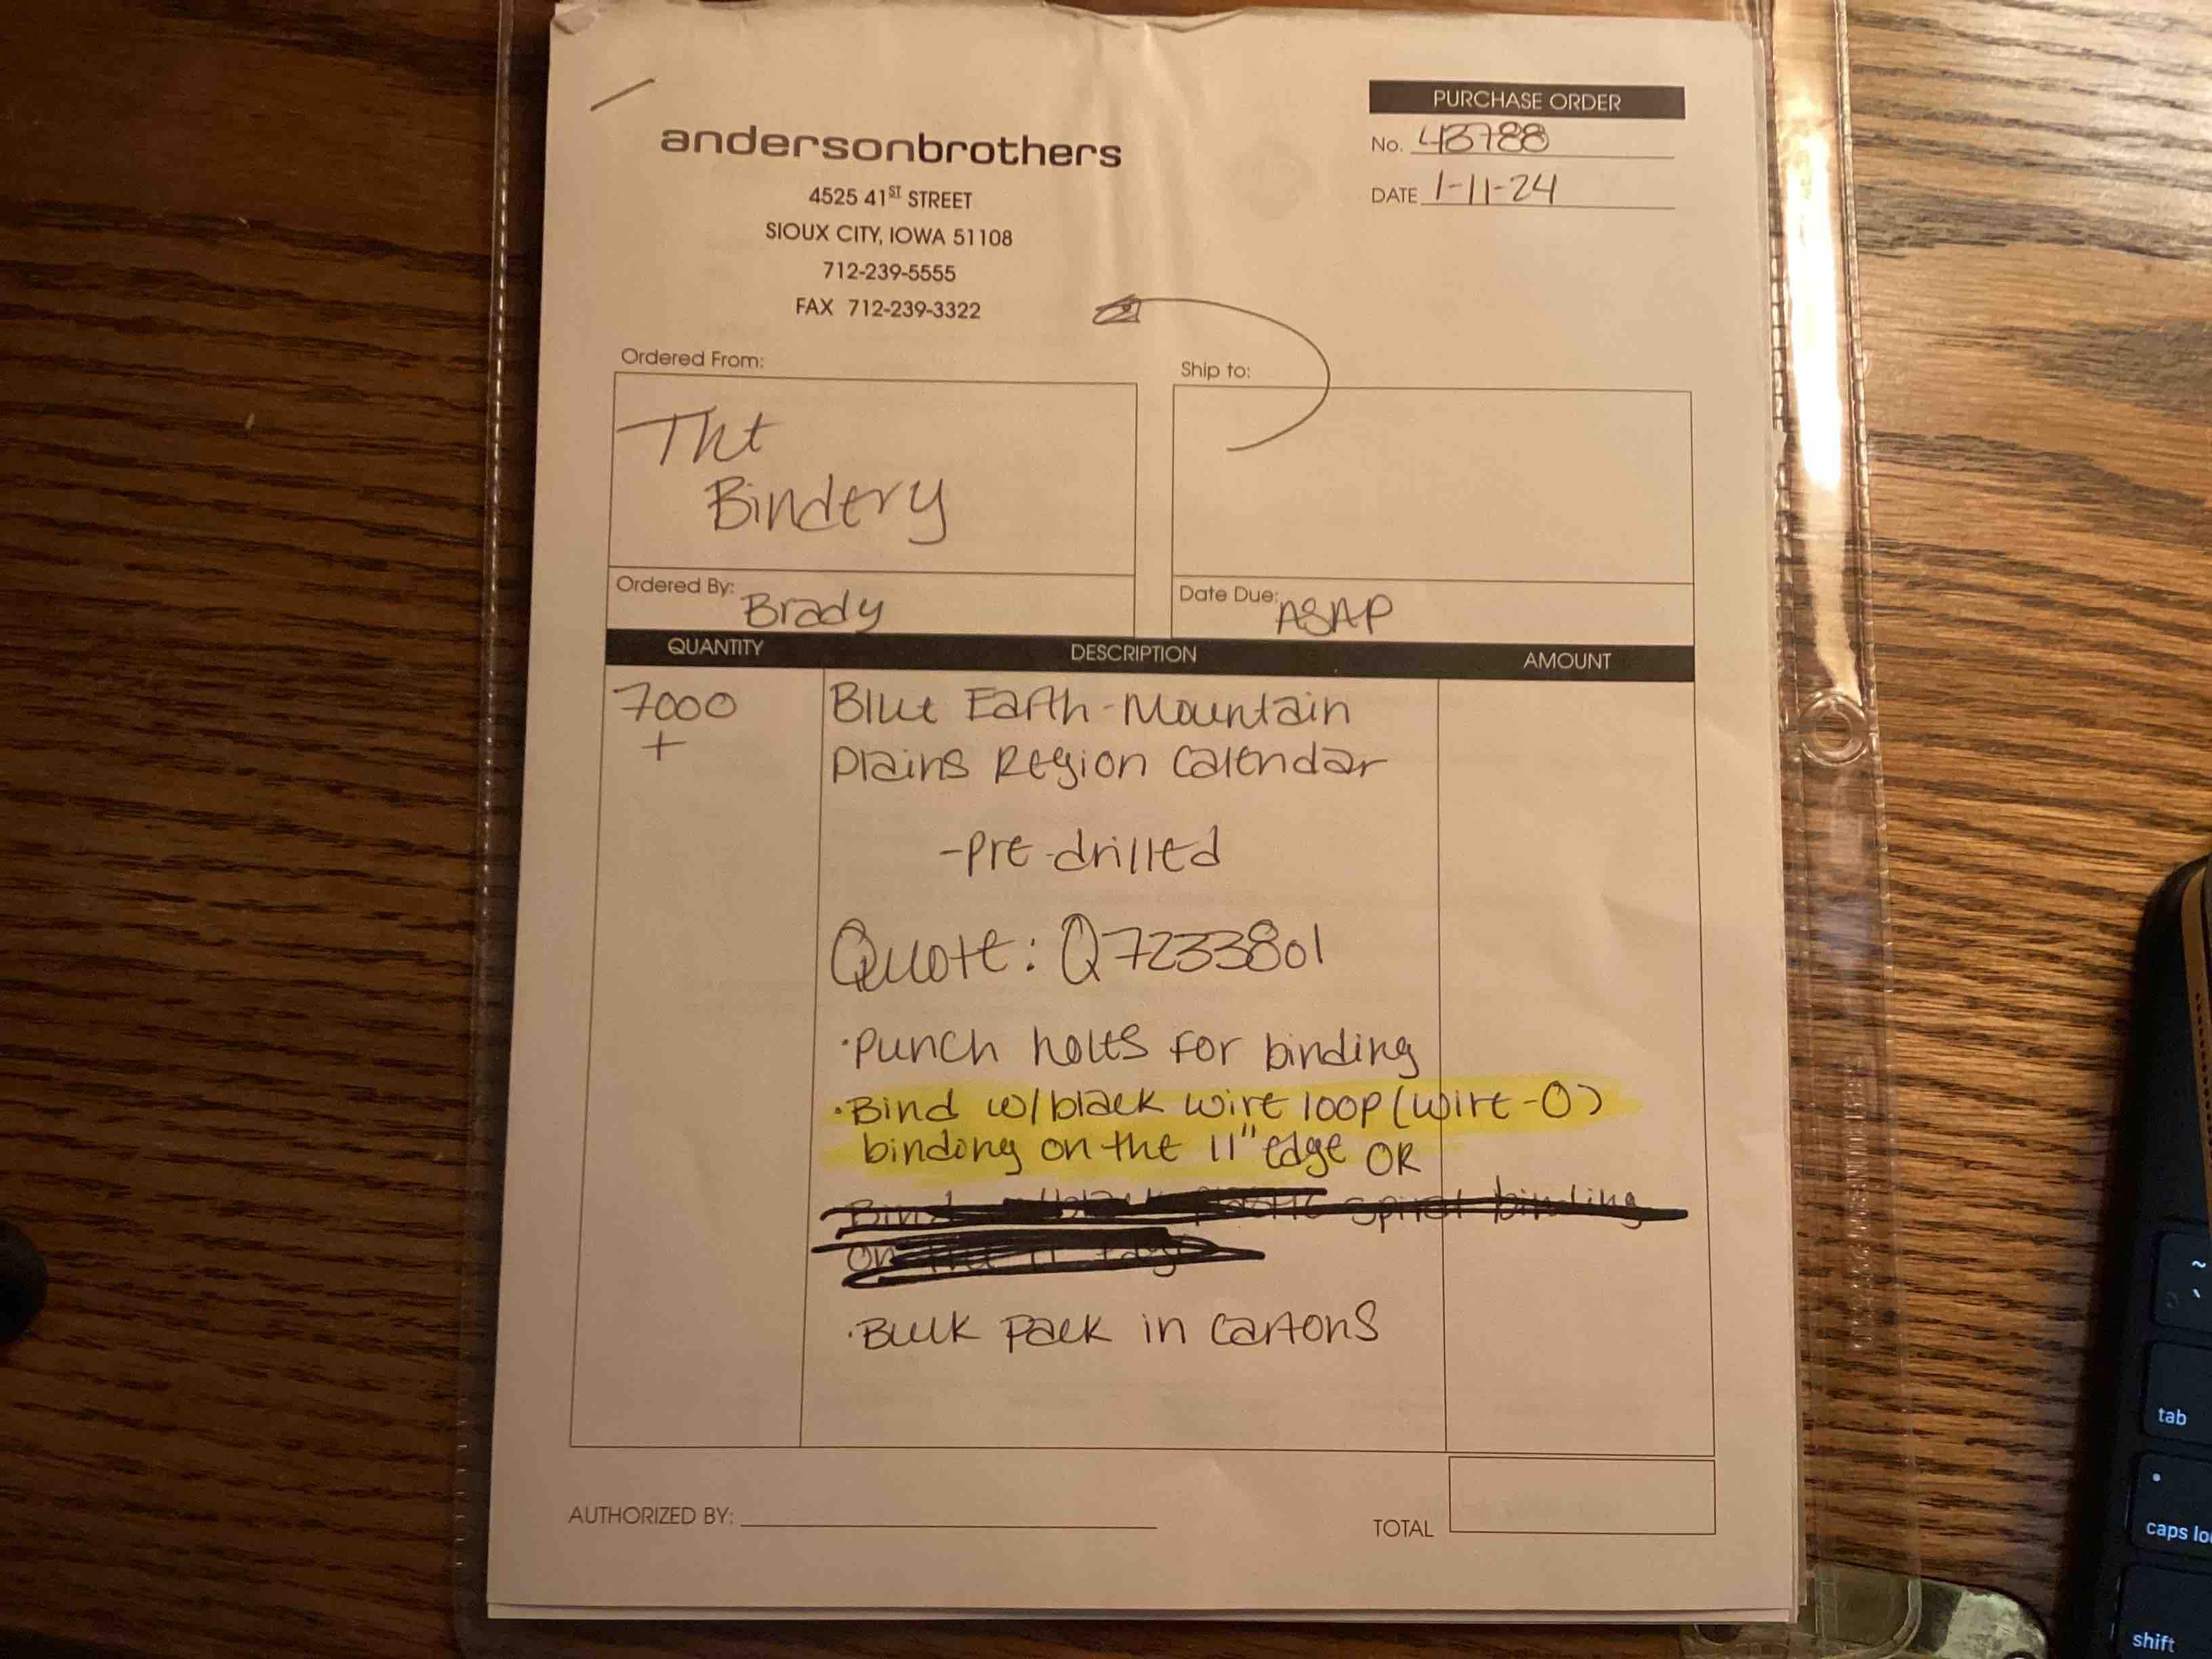 PURCHASE ORDER
No. 43788
DATE 1-11-24
andersonbrothers
4525 41ST STREET
SIOUX CITY, IOWA 51108
712-239-5555
FAX 712-239-3322
Ordered From:
The
Bindery
Ship to:
Ordered By: Brady
Date Due: ASAP
QUANTITY DESCRIPTION AMOUNT
7000 Blue Earth-Mountain
+ Plains Region Calendar
-pre-drilled
Quote: Q7233801
·Punch holes for binding
·Bind w/black wire loop (wire-O)
binding on the 11" edge OR
spiral binding
on the
·Bulk pack in cartons
AUTHORIZED BY:
TOTAL
tab
caps lo
shift